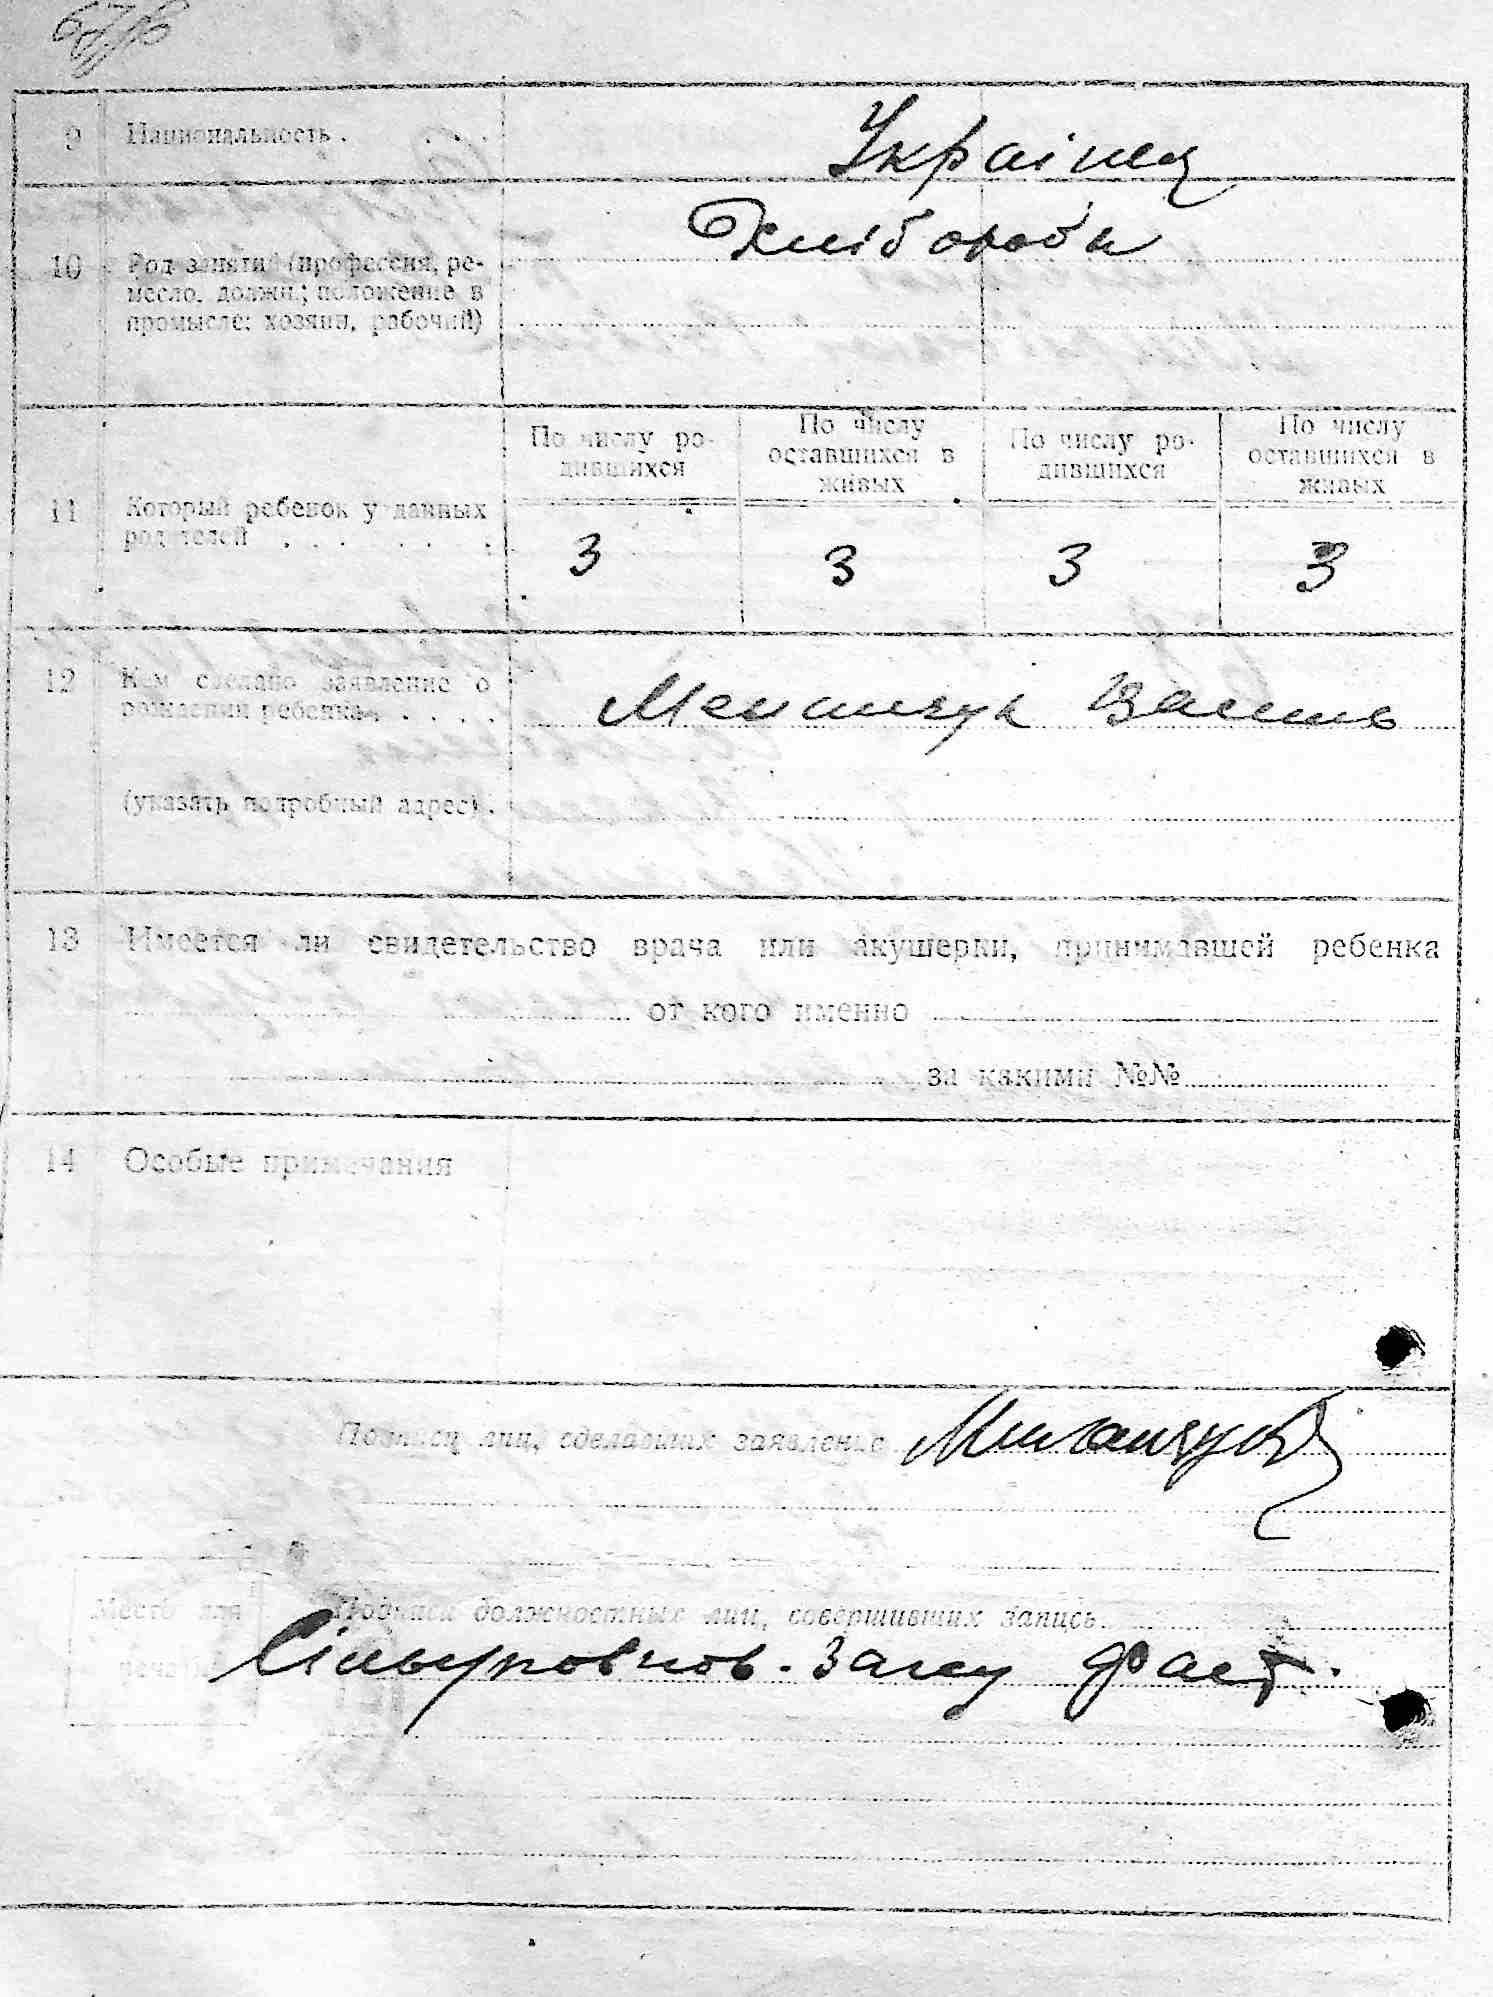 9 Национальность . . . . Українец
10 Род занятий (профессия, ре-
месло, должн.; положение в
промысле: хозяин, рабочий)
Хлібороби
11 Который ребенок у данных
родителей . . . . . . .
По числу ро-
дившихся
По числу
оставшихся в
живых
По числу ро-
дившихся
По числу
оставшихся в
живых
3 3 3 3
12 Кем сделано заявление о
рождении ребенка . . . .
(указать подробный адрес) .
13 Имеется ли свидетельство врача или акушерки, принимавшей ребенка
от кого именно
за какими №№
14 Особые примечания
Подписи лиц, сделавших заявление
Место для
печати
Подписи должностных лиц, совершивших запись